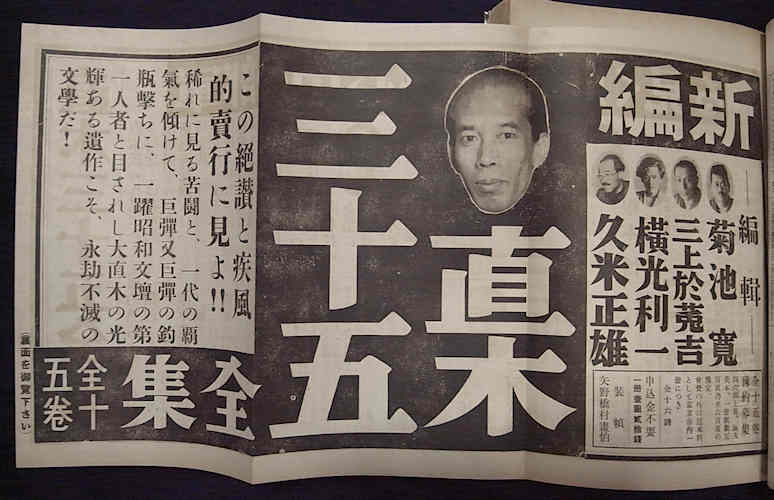 新編
編輯
菊池寬
三上於菟吉
橫光利一
久米正雄
全十五卷
豫約募集
申込金不要
一冊壹圓貳拾錢
裝幀
矢野橋村畫伯
直木
三十五
全集
全十五卷
この絕讃と疾風
的賣行に見よ!!
稀れに見る苦鬪と、一代の覇
氣を傾けて、巨彈又巨彈の釣
甁擊ちに、一躍昭和文壇の第
一人者と目されし大直木の光
輝ある遺作こそ、永劫不滅の
文學だ!
(裏面を御覽下さい)